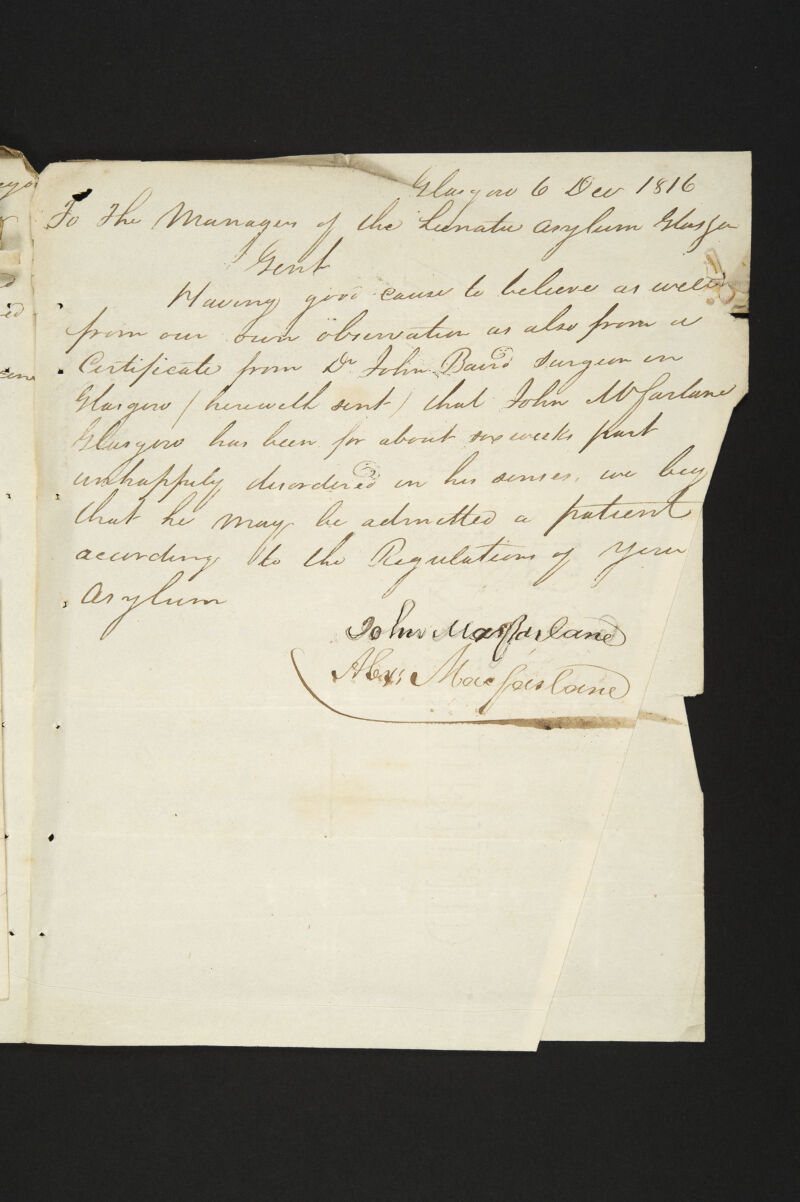 Glasgow 6 Dec 1816
To The Managers of the Lunatic Asylum Glasgo
Gent
Having good cause to believe as well
from our own observation as also from a
Certificate from Dr John Baird surgeon in
Glasgow (herewith sent) that John McFarlane
Glasgow has been for about six weeks past
unhappily disordered in his senses, we beg
that he may be admitted a patient
according to the Regulations of your
Asylum
John Macfarlane
Alexr Macfarlane